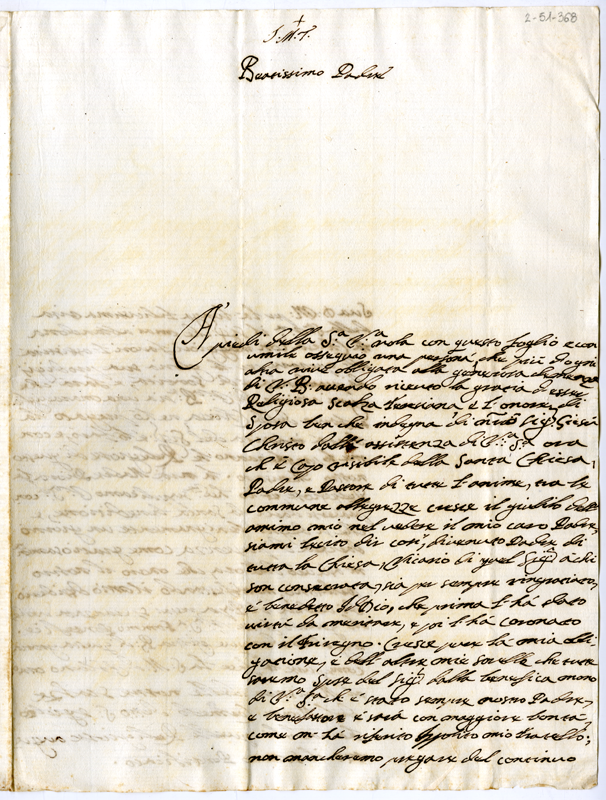 2-51-368
J. M. J.
Beatissimo Padre
A' piedi della S.ª V.ª vola con questo foglio e con
umile ossequio una persona, che più d'ogni
altra vive obligata alla generosa clemenza
di V. B. avendo ricevuto la gracia d'esser
Religiosa Scalza Teresiana e l'onore di
Sposa ben che indegna di mio Sig.r Giesù
Christo dalla assistenza di V.ª S.ª ora
ch'è Capo visibile della Santa Chiesa,
Padre, e Pastore di tutte l'anime, tra le
commune allegrezze cresce il giubilo dell'
animo mio nel vedere il mio caro Padre,
siami lecito dir così, divenuto Padre di
tutta la Chiesa, Vicario di quel Sig.r a chi
son consecrata, sia per sempre ringraciato,
e benedetto Iddio, che prima l'há dato
virtù da meritare, e poi l'há coronato
con il Triregno. Cresce per la mia obli-
gacione, e dell'altre mie sorelle che tutte
savemo spose del Sig.r dalla benefica mano
di V.ª S.ª ch'è stato sempre nostro Padre,
e benefattore e sarà con maggiore bontà,
come m'ha riferito Ippolito mio fratello;
non mancheremo pregare del continuo